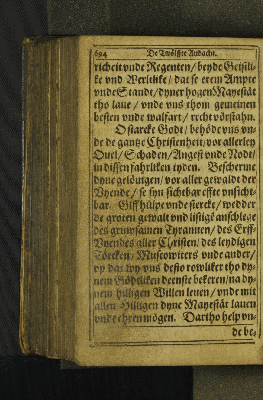 694 De Twölffte Andacht.
richeit vnde Regenten / beyde Geistli-
ke vnd Werltlike / dat se erem Ampte
vnde Stande / dyner hogen Mayestät
tho laue / vnde vns thom gemeinen
besten vnde walfart / recht vörstahn.
O starcke Godt / behöde vns vn-
de de gantze Christenheit / vor allerley
Quel / Schaden / Angest vnde Nodt /
in dissen fahrliken tyden. Bescherme
dyne gelöuigen / vor aller gewaldt der
Vyende / se syn sichtbar effte vnsicht-
bar. Giff hülpe vnde stercke / wedder
de groten gewalt vnd listige anschlege
des gruwsamen Tyrannen / des Erff-
Vyendes aller Christen / des leydigen
Törcken / Muscowiters vnde ander /
vp dat wy vns desto rowliker tho dy-
nem Gödtliken deenste bekeren / na dy-
nem hilligen Willen leuen / vnde mit
allen Hilligen dyne Mayestät lauen
vnde ehren mögen. Dartho help vn-
de be-